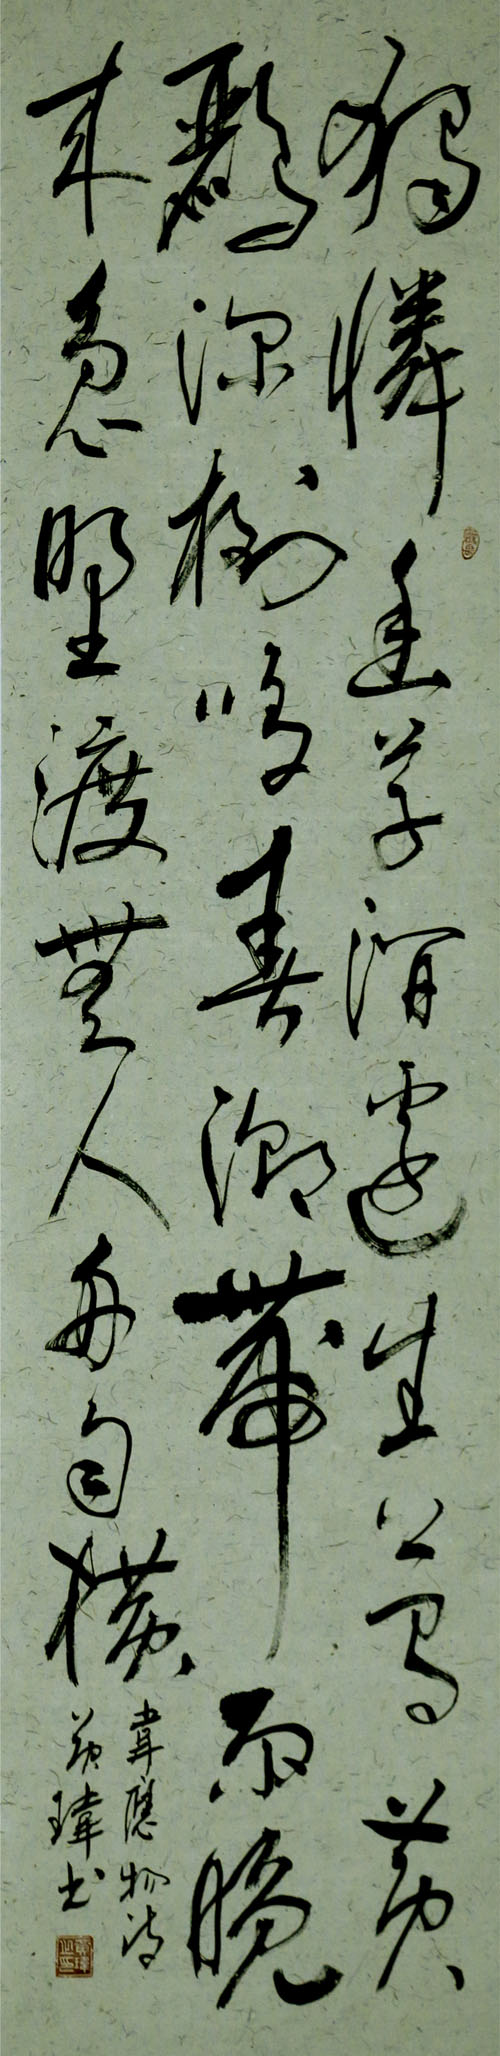 獨憐幽草澗邊生上有黃
鸝深樹鳴春潮帶雨晚
來急野渡無人舟自橫
韋應物詩
黃瑋书